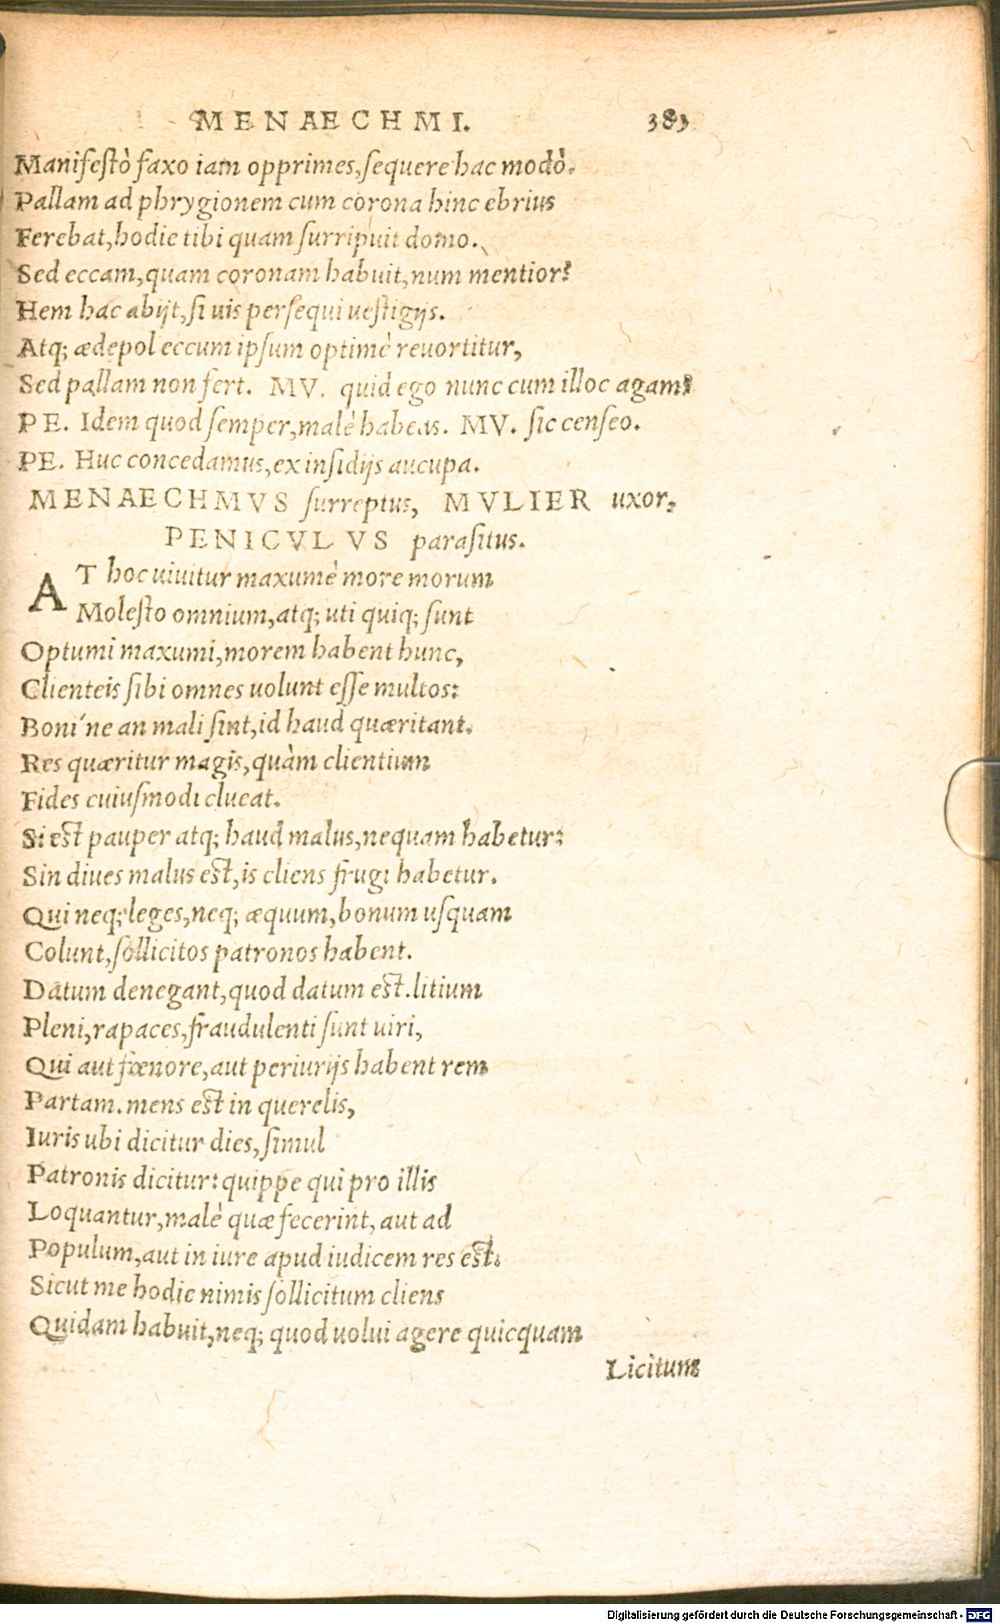 MENAECHMI. 383
Manifestò faxo iam opprimes, sequere hac modò.
Pallam ad phrygionem cum corona hinc ebrius
Ferebat, hodie tibi quam surripuit domo.
Sed eccam, quam coronam habuit, num mentior?
Hem hac abijt, si uis persequi uestigijs.
Atq; ædepol eccum ipsum optimè reuortitur,
Sed pallam non fert. MV. quid ego nunc cum illoc agam?
PE. Idem quod semper, malè habeas. MV. sic censeo.
PE. Huc concedamus, ex insidijs aucupa.
MENAECHMVS surreptus, MVLIER uxor.
PENICVLVS parasitus.
AT hoc uiuitur maxumè more morum
Molesto omnium, atq; uti quiq; sunt
Optumi maxumi, morem habent hunc,
Clienteis sibi omnes uolunt esse multos:
Boni´ne an mali sint, id haud quæritant.
Res quæritur magis, quàm clientium
Fides cuiusmodi clueat.
Si est pauper atq; haud malus, nequam habetur:
Sin diues malus est, is cliens frugi habetur.
Qui neq; leges, neq; æquum, bonum usquam
Colunt, sollicitos patronos habent.
Datum denegant, quod datum est. litium
Pleni, rapaces, fraudulenti sunt uiri,
Qui aut fœnore, aut periurijs habent rem
Partam. mens est in querelis,
Iuris ubi dicitur dies, simul
Patronis dicitur: quippe qui pro illis
Loquantur, malè quæ fecerint, aut ad
Populum, aut in iure apud iudicem res est.
Sicut me hodie nimis sollicitum cliens
Quidam habuit, neq; quod uolui agere quicquam
Licitum
Digitalisierung gefördert durch die Deutsche Forschungsgemeinschaft - DFG